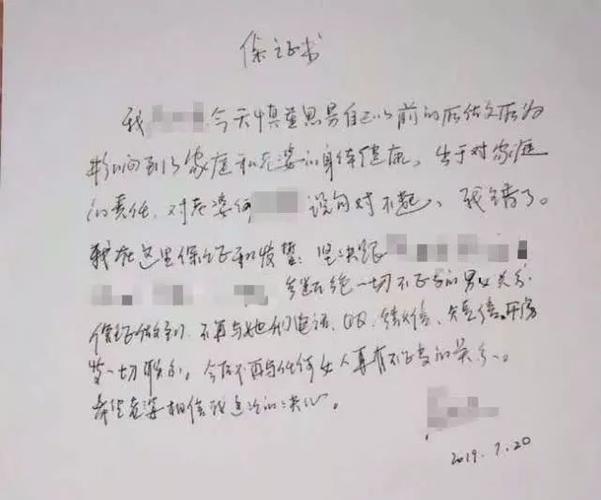 保证书
我 今天慎重思量自己以前的所做所为
影响到了家庭和老婆的身体健康。出于对家庭
的责任,对老婆 说句对不起、我错了。
我在这里保证和发誓:坚决跟
断绝一切不正当的男女关系.
保证做到:不再与她们电话、QQ、微信、短信、开房
等一切联系,今后不再与任何女人再有不正当的关系。
希望老婆相信我这次的决心。
2019.7.20